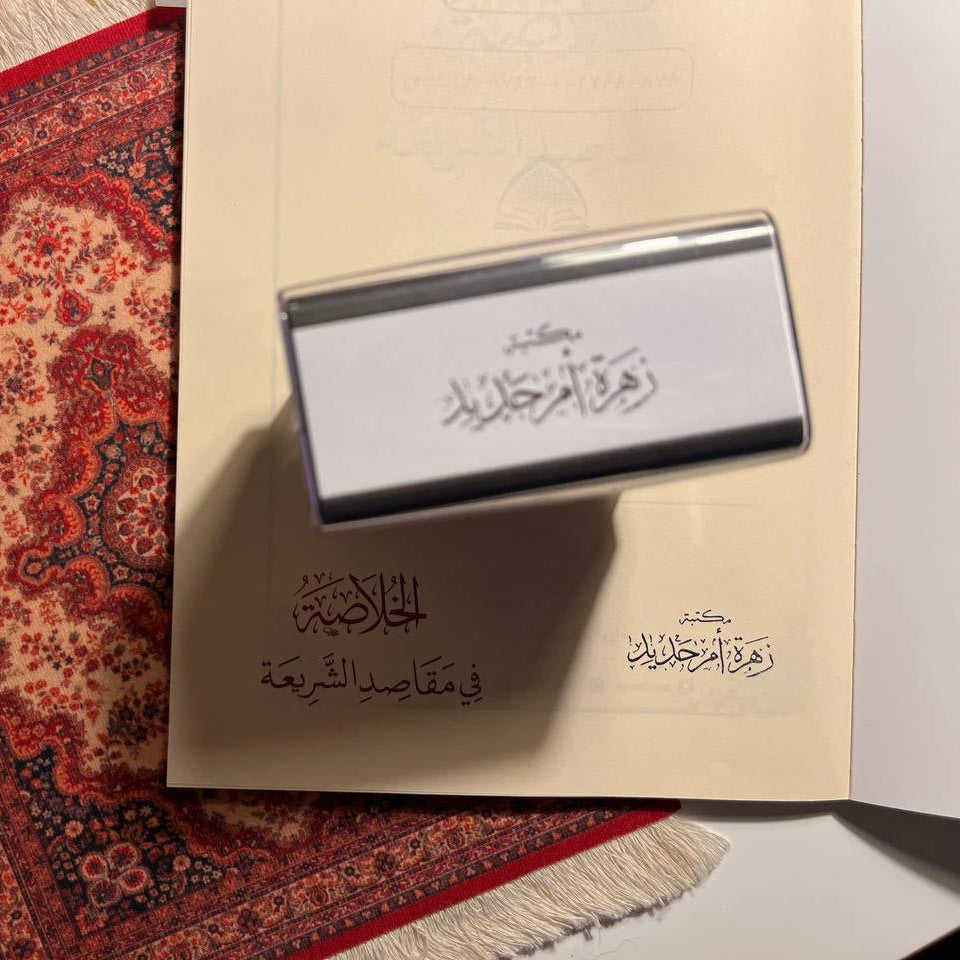 مكتبة
زهرة أم حديد
الخُلَاصَةُ
فِي مَقَاصِدِ الشَّرِيعَة
مكتبة
زَهرَة أم حَديد